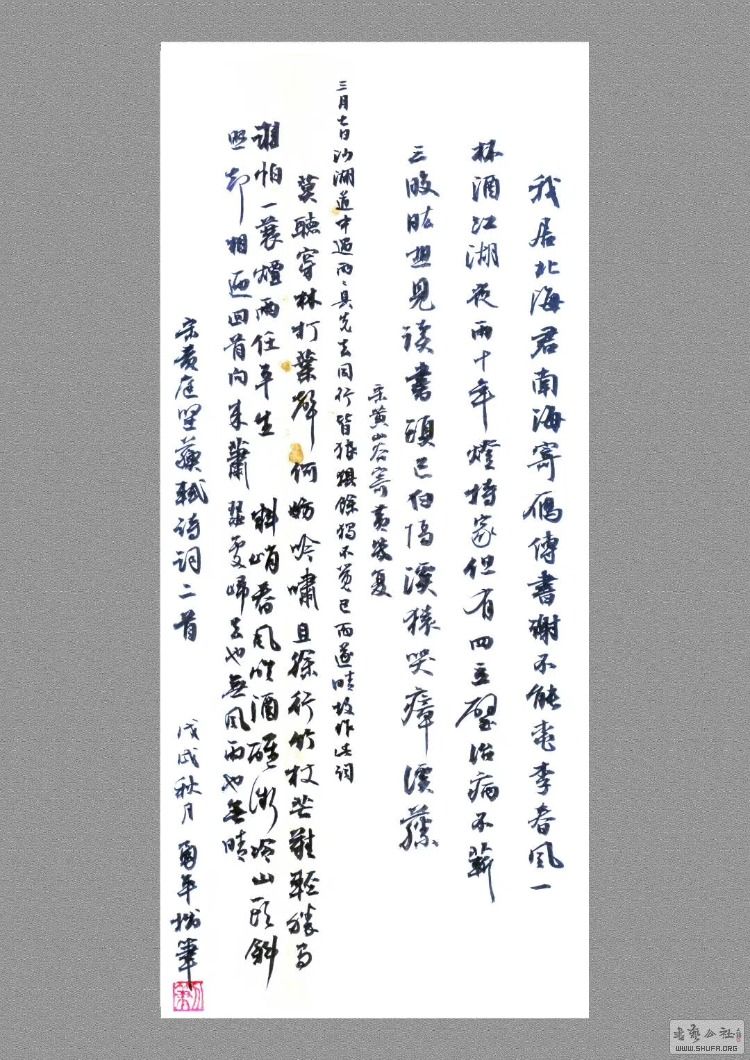 我居北海君南海寄雁傳書謝不能桃李春風一
杯酒江湖夜雨十年燈持家但有四立壁治病不蘄
三股肱想見读書頭已白隔溪猿哭瘴溪藤
宋黄山谷寄黄幾复
三月七日沙湖道中遇雨雨具先去同行皆狼狽餘獨不覺已而遂晴故作此詞
莫聽穿林打葉聲何妨吟嘯且徐行竹杖芒鞋輕勝马
誰怕一蓑煙雨任平生 料峭春风吹酒醒微冷山頭斜
照却相迎回首向来蕭瑟處歸去也無风雨也無晴
宋黄庭坚蘇軾诗词二首
戊戌秋月 年 筆
書藝公社
WWW.SHUFA.ORG